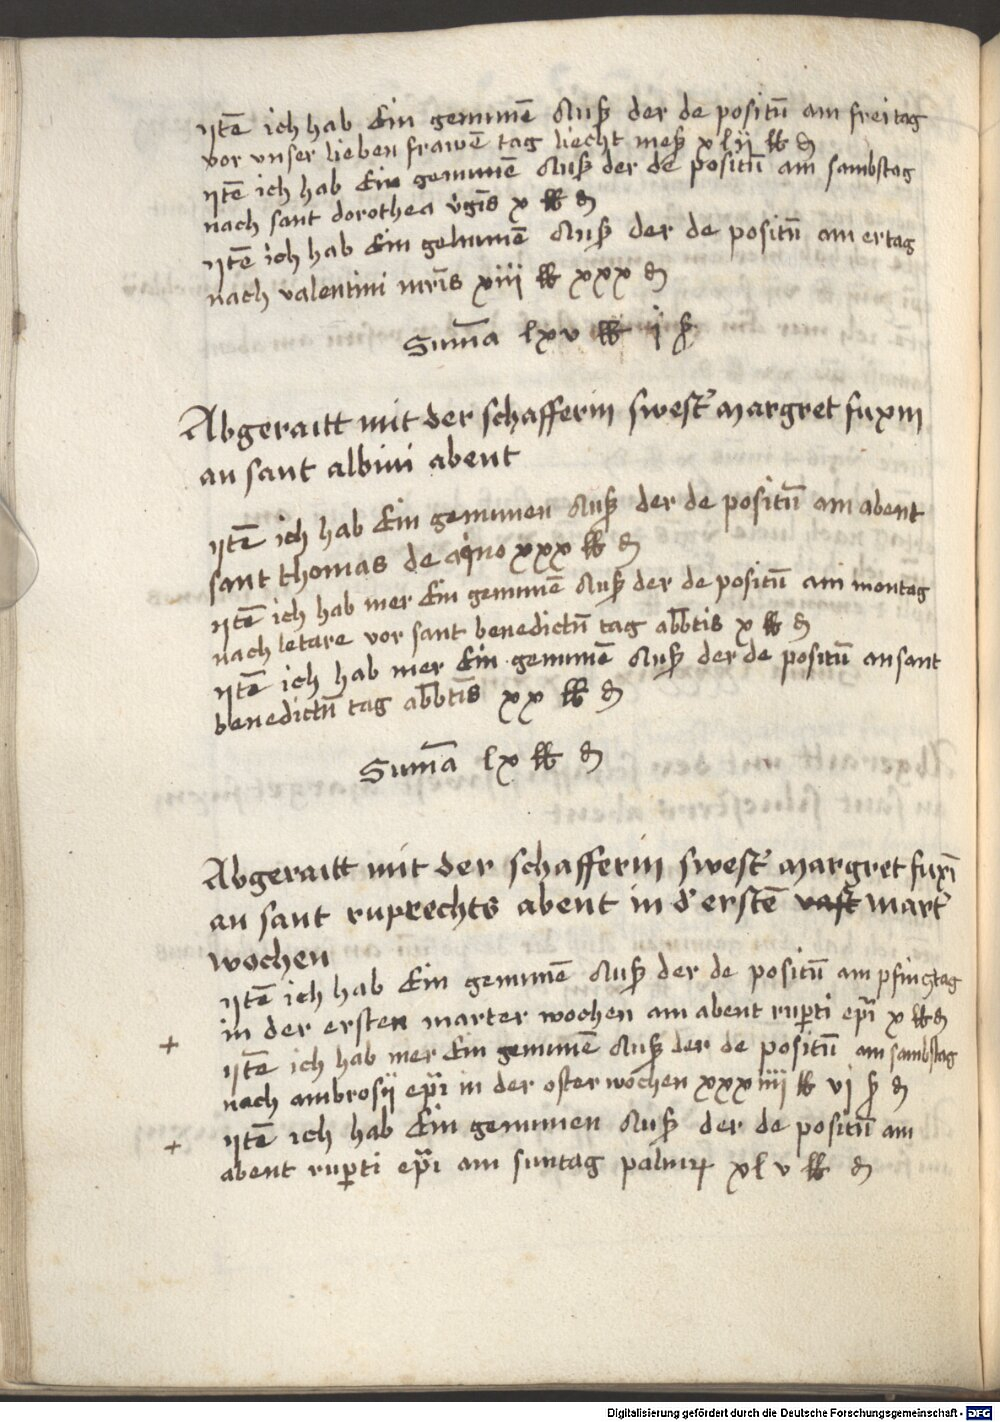 ytē ich hab Ein genumē Auß der de positū am freitag
vor vnser lieben frawē tag liecht meß xlii ℔ ₰
ytē ich hab Ein genumē Auß der de positū am sambstag
nach sant dorothea v̄gīs x ℔ ₰
ytē ich hab Ein genumē Auß der de positū am ertag
nach valentini mr̄is xiii ℔ xxx ₰
Sum̄a lxv ℔ i ß
Abgeraitt mit der schafferin swest' margret fuxin
an sant albini abent
ytē ich hab Ein genumen Auß der de positū am abent
sant thomas de aq̇no xxx ℔ ₰
ytē ich hab mer Ein genumē Auß der de positū am montag
nach letare vor sant benedictū tag ab̄btis x ℔ ₰
ytē ich hab mer Ein genumē Auß der de positū an sant
benedictū tag ab̄btīs xx ℔ ₰
Sum̄a lx ℔ ₰
Abgeraitt mit der schafferin swest' margret fuxī
an sant ruprechts abent in d' erstē vast mart'
wochen
ytē ich hab Ein genumē Auß der de positū am pfincztag
in der ersten marter wochen am abent rup̱ti ep̄i x ℔ ₰
+ ytē ich hab mer Ein genumē Auß der de positū am sambstag
nach ambrosij ep̄i in der oster wochen xxxiiii ℔ vi ß ₰
+ ytē ich hab Ein genumen Auß der de positū am
abent rup̱ti ep̄i am suntag palmaꝝ xlv ℔ ₰
Digitalisierung gefördert durch die Deutsche Forschungsgemeinschaft - DFG